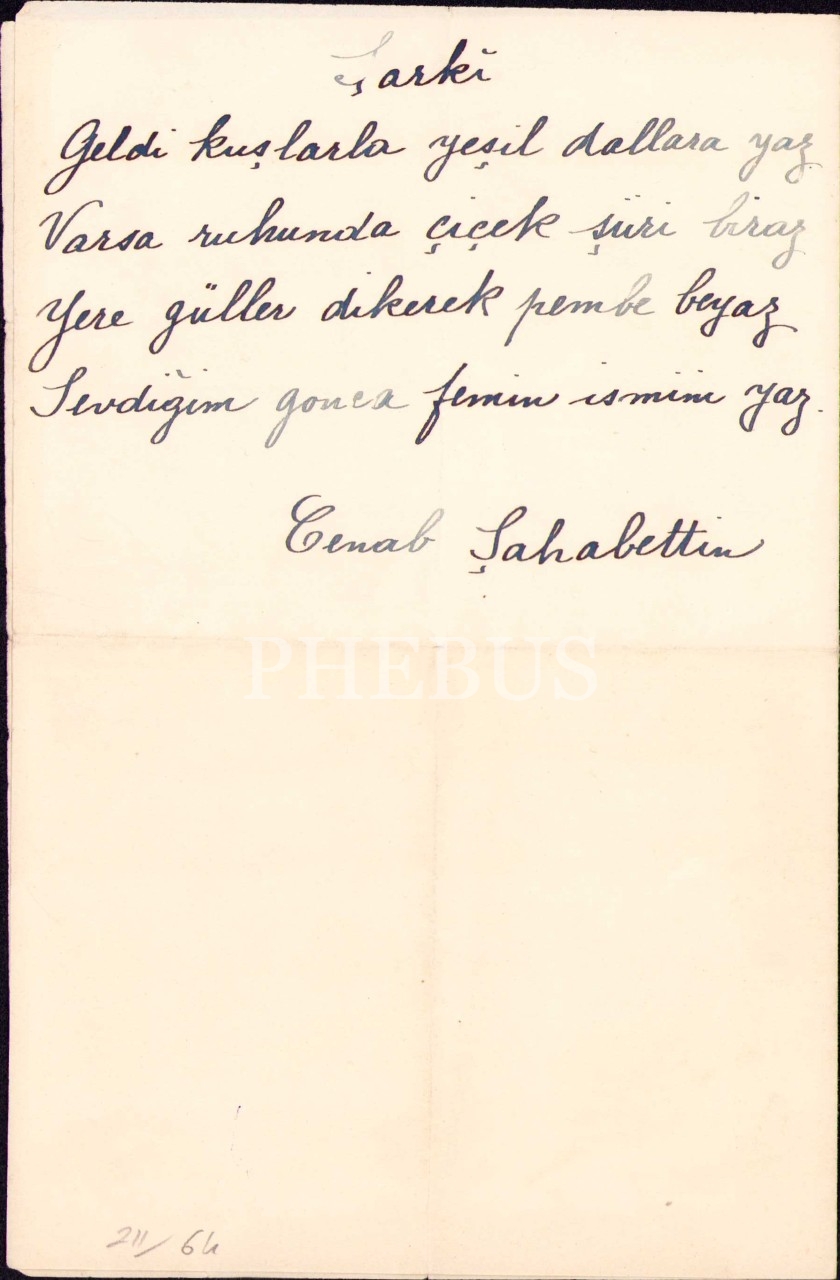 Şarki
Geldi kuşlarla yeşil dallara yaz
Varsa ruhunda çiçek şiiri biraz
Yere güller dikerek pembe beyaz
Sevdiğim gonca femin ismini yaz.
Cenab Şahabettin
PHEBUS